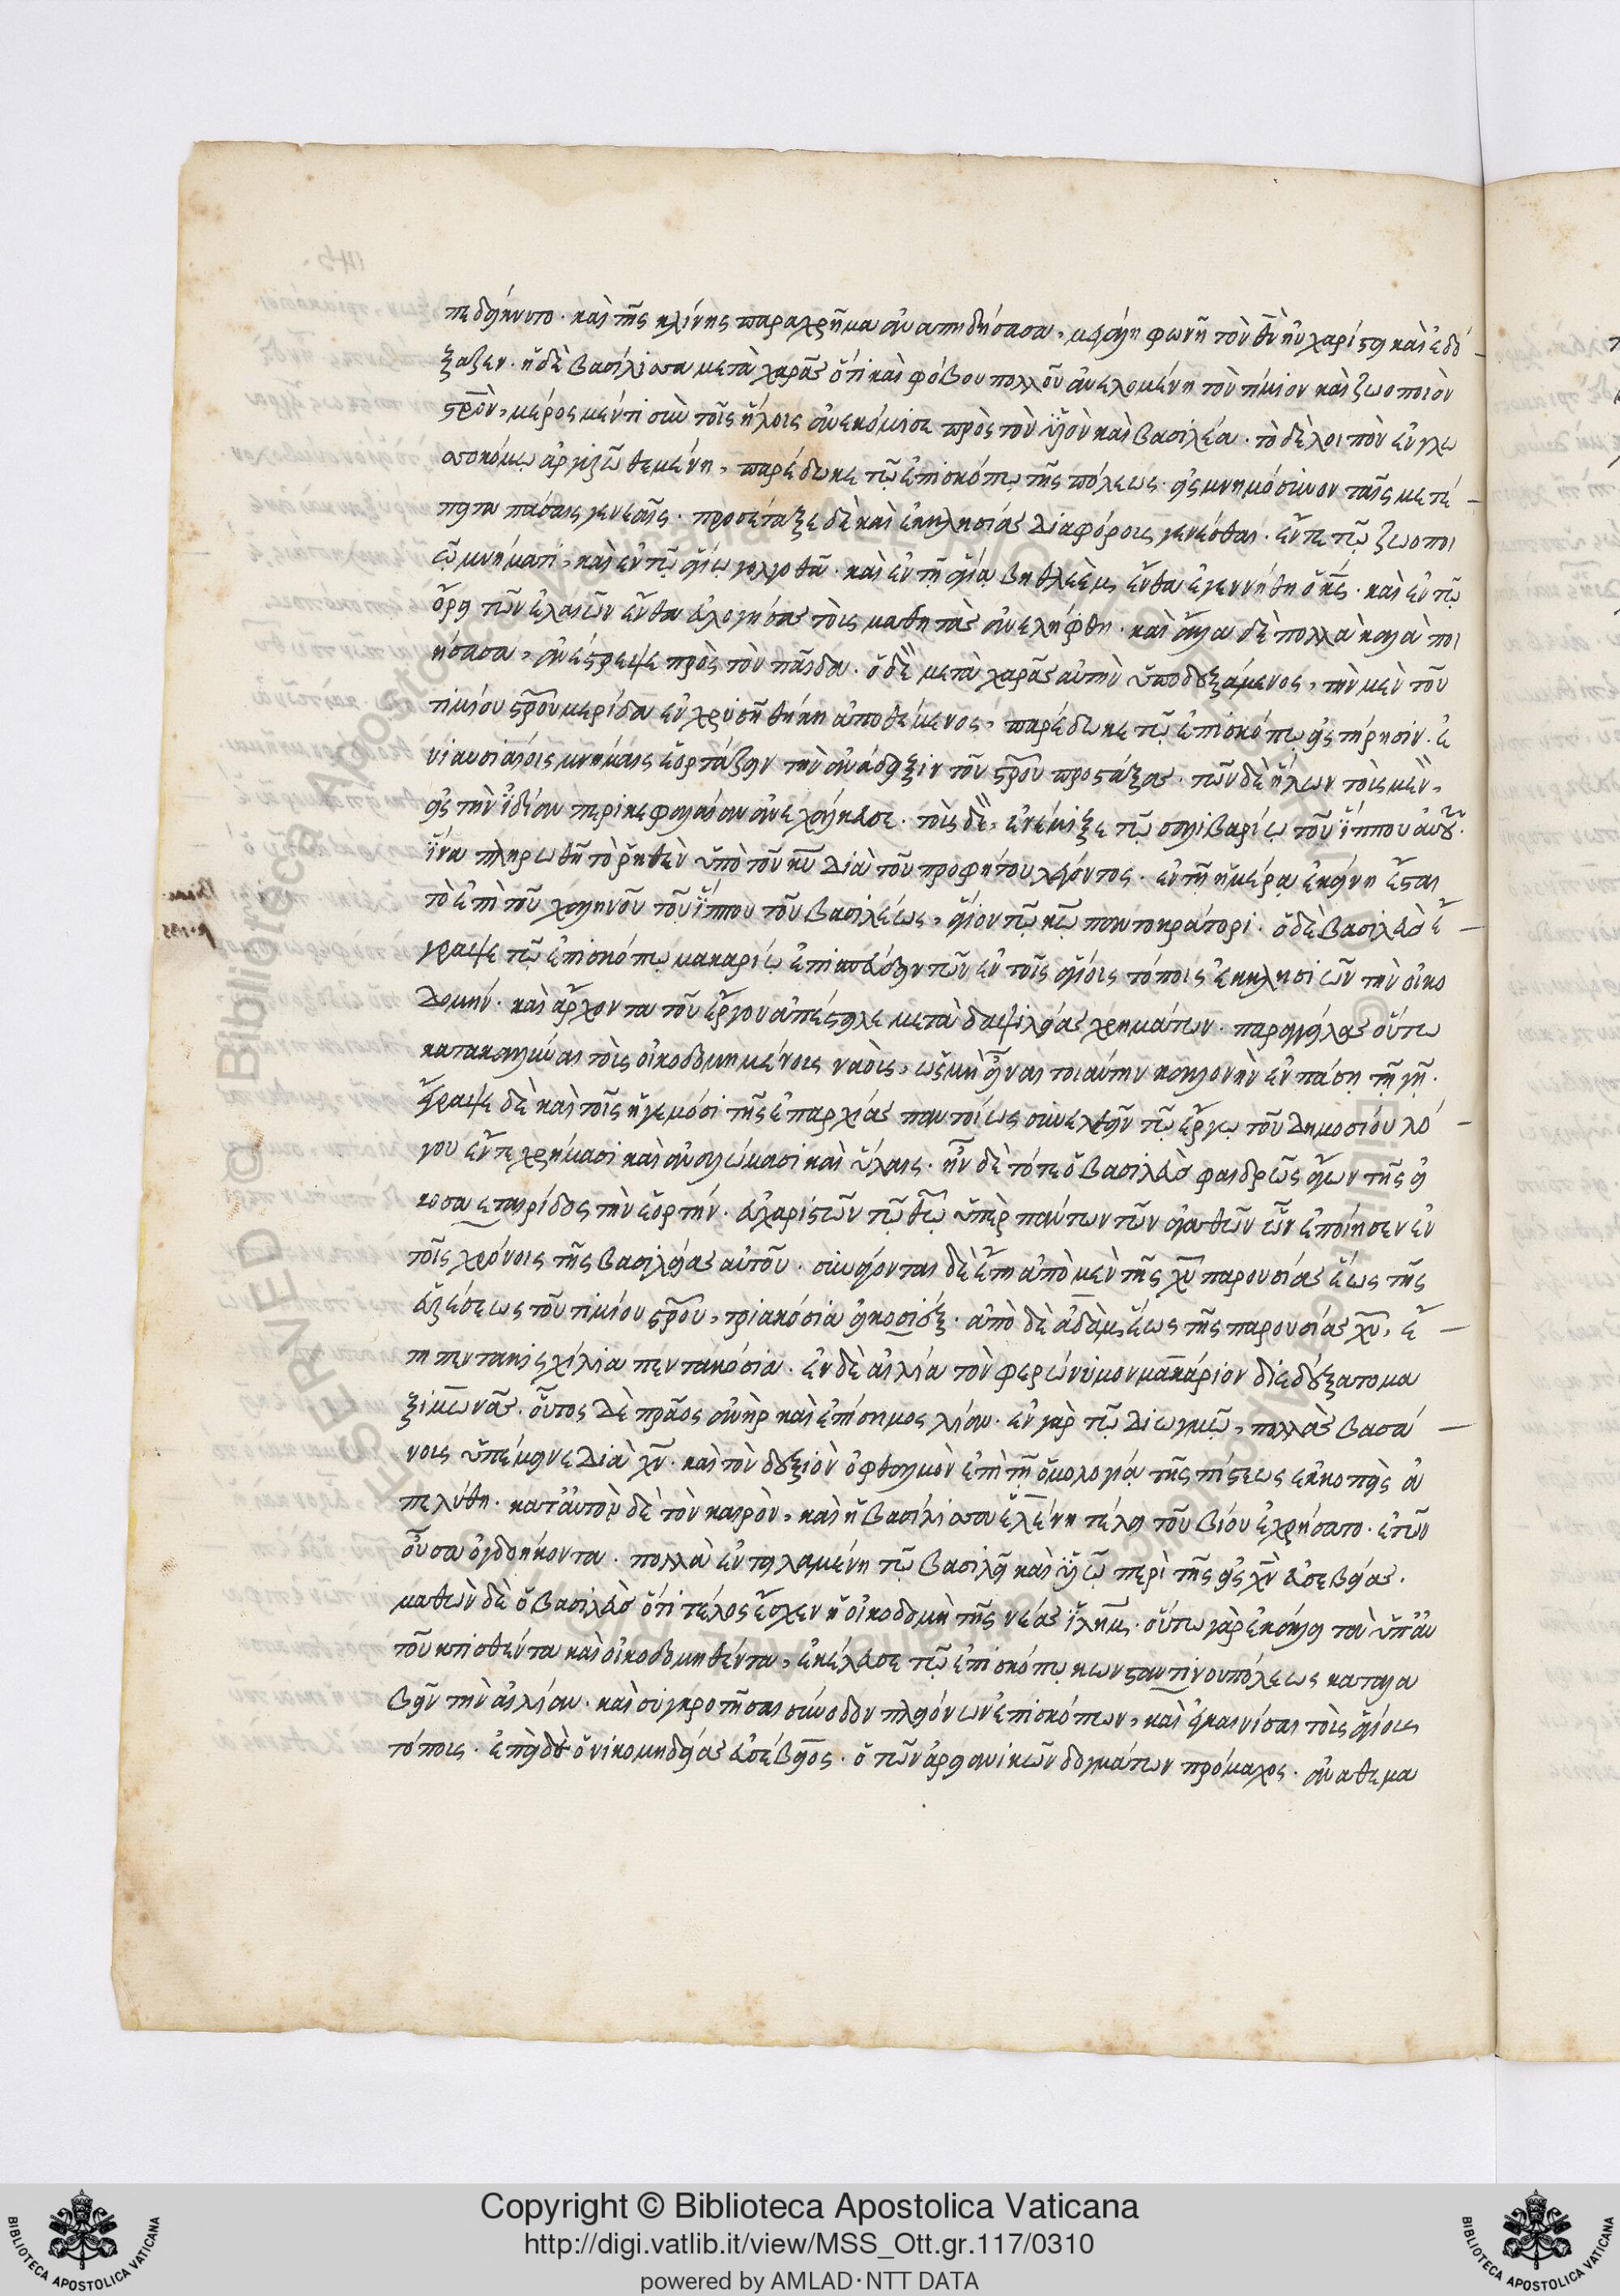 πεδείκνυτο. καὶ τῆς κλίνης παραχρῆμα ἀναπηδήσασα, μεγάλη φωνῆ τὸν θν ηὐχαρίστει καὶ ἐδό
ξαζεν. ἡ δὲ βασίλισσα μετὰ χαρᾶς ὅτι καὶ φόβου πολλοῦ ἀνελομένη τὸν τίμιον καὶ ζωοποιὸν
στρὸν, μέρος μέντι σὺν τοῖς ἥλοις ἀνεκόμισε πρὸς τὸν υἱὸν καὶ βασιλέα. τὸ δὲ λοιπὸν ἐν γλω
σσοκόμω ἀργυρῶ θεμένη, παρέδωκε τῶ ἐπισκόπω τῆς πόλεως. εἰς μνημόσυνον ταῖς μετέ
πειτα πάσαις γενεαῖς. προσέταξε δὲ καὶ ἐκκλησίας διαφόροις γενέσθαι. ἔν τε τῶ ζωοποι
ῶ μνήματι, καὶ ἐν τῶ ἁγίω γολγοθᾶ. καὶ ἐν τῆ ἁγία βηθλεὲμ, ἔνθα ἐγεννήθη ὁ κς. καὶ ἐν τῶ
ὄρει τῶν ἐλαιῶν ἔνθα εὐλογήσας τοὺς μαθητὰς ἀνελήφθη. καὶ ἄλλα δὲ πολλὰ καλὰ ποι
ήσασα, ἀνέστρεψε πρὸς τὸν παῖδα. ὁ δὲ μετὰ χαρᾶς αὐτὴν ὑποδεξάμενος, τὴν μὲν τοῦ
τιμίου στροῦ μερίδα ἐν χρυσῆ θήκη ἀποθέμενος, παρέδωκε τῶ ἐπισκόπω εἰς τήρησιν. ἐ
νιαυσιαίοις μνήμαις ἑορτάζειν τὴν ἀνάδειξιν τοῦ στροῦ προστάξας. τῶν δὲ ἥλων τοὺς μὲν,
εἰς τὴν ἰδίαν περικεφαλαίαν ἀνεχάλκευσε. τοὺς δὲ, ἐνέμιξε τῶ σαλιβαρίω τοῦ ἵππου αὐτοῦ.
ἵνα πληρωθῆ τὸ ῥηθὲν ὑπὸ τοῦ κυ διὰ τοῦ προφήτου λέγοντος. ἐν τῆ ἡμέρα ἐκείνη ἔσται
τὸ ἐπὶ τοῦ χαλινοῦ τοῦ ἵππου τοῦ βασιλέως, ἅγιον τῶ κω παντοκράτορι. ὁ δὲ βασιλεὺς ἔ
γραψε τῶ ἐπισκόπω μακαρίω ἐπισπεύδειν τῶν ἐν τοῖς ἁγίοις τόποις ἐκκλησιῶν τὴν οἰκο
δομήν. καὶ ἄρχοντα τοῦ ἔργου ἀπέστειλε μετὰ δαψιλείας χρημάτων. παραγγείλας οὕτω
κατακαλλῦναι τοὺς οἰκοδομημένους ναοὺς, ὡς μὴ εἶναι τοιαύτην καλλονὴν ἐν πάση τῆ γῆ.
ἔγραψε δὲ καὶ τοῖς ἡγεμόσι τῆς ἐπαρχίας παντοίως συνελθεῖν τῶ ἔργω τοῦ δημοσίου λό
γου ἔν τε χρήμασι καὶ ἀναλώμασι καὶ ὕλαις. ἦν δὲ τότε ὁ βασιλεὺς φαιδρῶς ἄγων τῆς εἰ
κοσαετηρίδος τὴν ἑορτήν. εὐχαριστῶν τῶ θω ὑπὲρ πάντων τῶν ἀγαθῶν ὧν ἐποίησεν ἐν
τοῖς χρόνοις τῆς βασιλείας αὐτοῦ. συνάγονται δὲ ἔτη ἀπὸ μὲν τῆς χυ παρουσίας ἕως τῆς
εὑρέσεως τοῦ τιμίου στροῦ, τριακόσια εἰκοσιέξ. ἀπὸ δὲ ἀδὰμ, ἕως τῆς παρουσίας χυ, ἔ
τη πεντακισχίλια πεντακόσια. ἐν δὲ αἰλία τὸν φερώνυμον μακάριον διεδέξατο μα
ξιμωνᾶς. οὗτος δὲ πρᾶος ἀνὴρ καὶ ἐπίσημος λίαν. ἐν γὰρ τῶ διωγμῶ, πολλὰς βασά
νους ὑπέμεινε διὰ χν. καὶ τὸν δεξιὸν ὀφθαλμὸν ἐπὶ τῆ ὁμολογία τῆς πίστεως ἐκκοπεὶς ἀ
πελύθη. κατ αὐτὸν δὲ τὸν καιρὸν, καὶ ἡ βασίλισσα ἑλένη τέλει τοῦ βίου ἐχρήσατο. ἐτῶν
οὖσα ὀγδοήκοντα. πολλὰ ἐντειλαμένη τῶ βασιλεῖ καὶ υἱῶ περὶ τῆς εἰς χν εὐσεβείας.
μαθὼν δὲ ὁ βασιλεὺς ὅτι τέλος ἔσχεν ἡ οἰκοδομὴ τῆς νέας ἰλημ. οὕτω γὰρ ἐκάλει τὰ ὑπ αὐ
τοῦ κτισθέντα καὶ οἰκοδομηθέντα, ἐκέλευσε τῶ ἐπισκόπω κωνσταντινουπόλεως καταλα
βεῖν τὴν αἰλίαν. καὶ συγκροτῆσαι σύνοδον πλειόνων ἐπισκόπων, καὶ ἐγκαινίσαι τοὺς ἁγίους
τόπους. ἐπεὶ δὲ ὁ νικομηδείας εὐσέβειος. ὁ τῶν ἀρειανικῶν δογμάτων πρόμαχος. ἀναθεμα
Copyright © Biblioteca Apostolica Vaticana
http://digi.vatlib.it/view/MSS_Ott.gr.117/0310
powered by AMLAD·NTT DATA
BIBLIOTECA APOSTOLICA VATICANA
BIBLIOTECA APOSTOLICA VATICANA